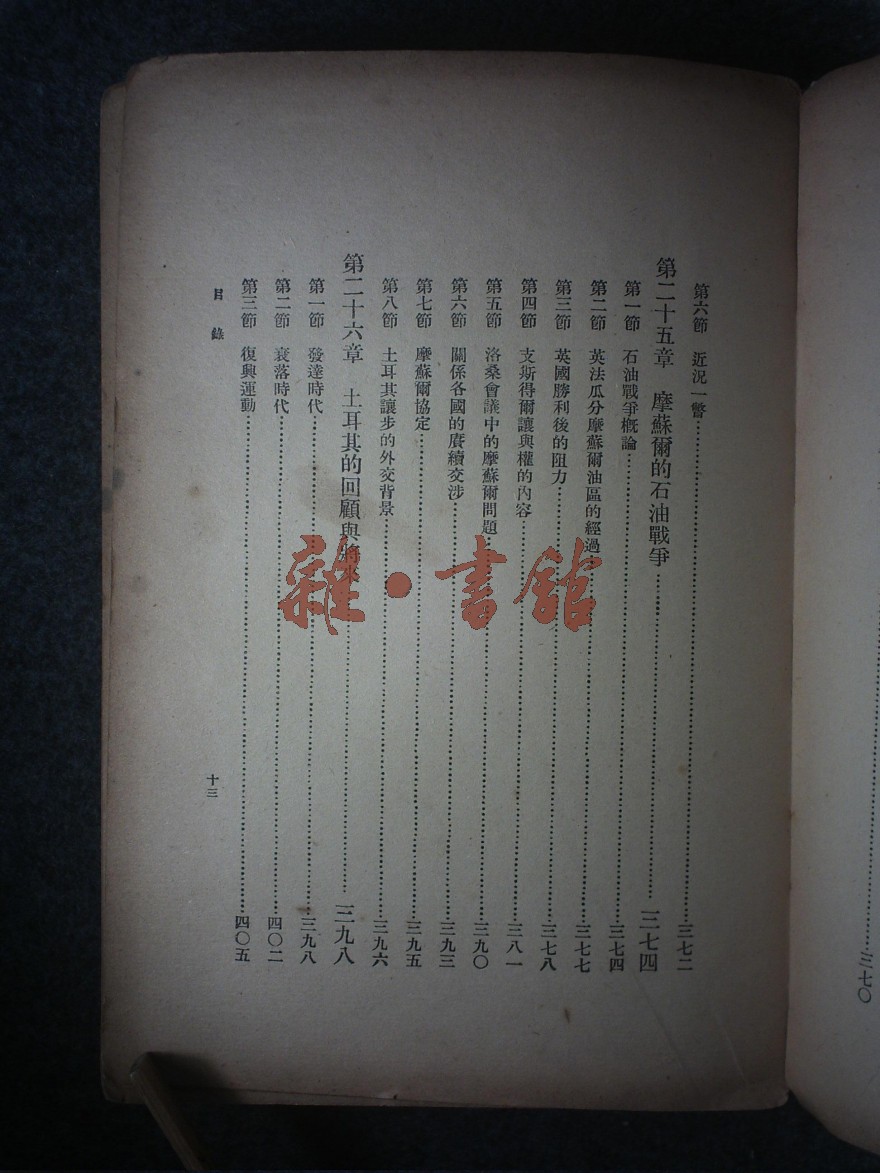 三七〇
第六節 近況一瞥…………三七二
第二十五章 摩蘇爾的石油戰爭…………三七四
第一節 石油戰爭概論…………三七四
第二節 英法瓜分摩蘇爾油區的經過…………三七七
第三節 英國勝利後的阻力…………三七八
第四節 支斯得爾讓與權的內容…………三八一
第五節 洛桑會議中的摩蘇爾問題…………三九〇
第六節 關係各國的賡續交涉…………三九三
第七節 摩蘇爾協定…………三九五
第八節 土耳其讓步的外交背景…………三九六
第二十六章 土耳其的回顧與將…………三九八
第一節 發達時代…………三九八
第二節 衰落時代…………四〇二
第三節 復興運動…………四〇五
目錄
十三
雜·書館